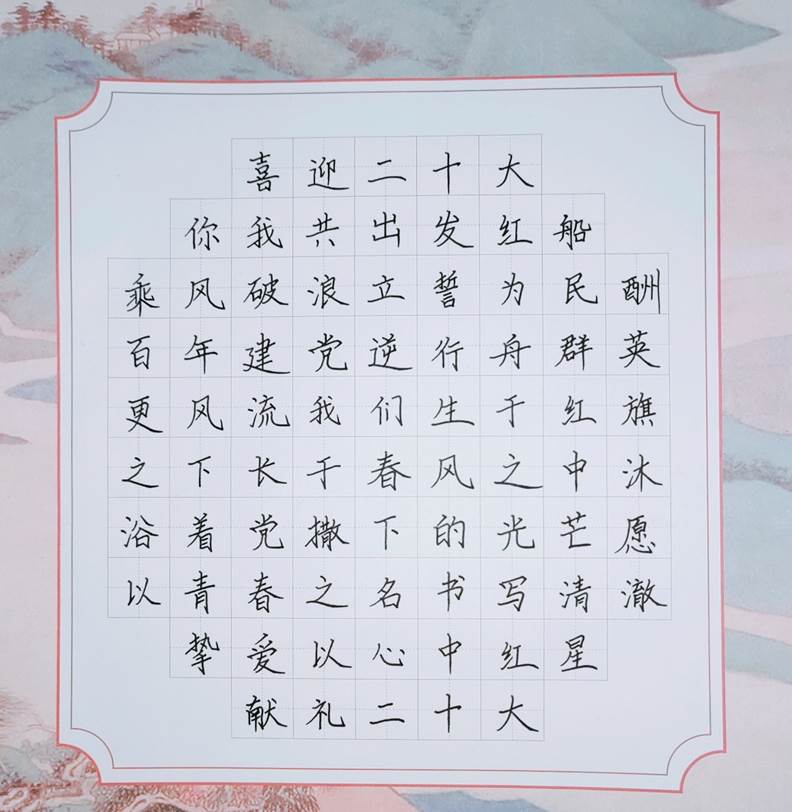 喜迎二十大
你我共出发红船
乘风破浪立誓为民酬
百年建党逆行舟群英
更风流我们生于红旗
之下长于春风之中沐
浴着党撒下的光芒愿
以青春之名书写清澈
挚爱以心中红星
献礼二十大